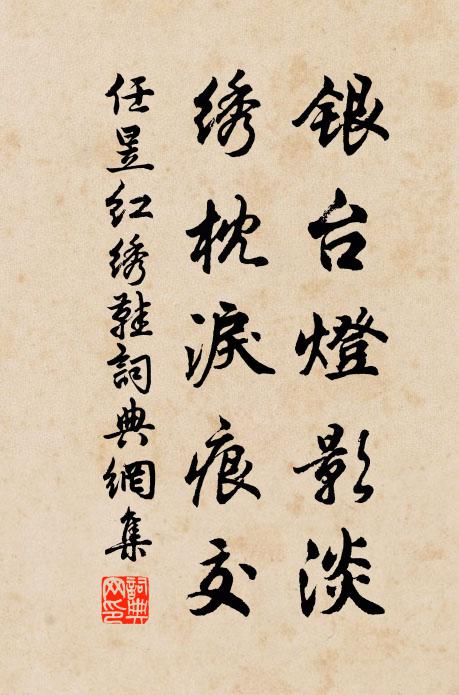 银台燈影淡
绣枕淚痕交
任昱红绣鞋詞典網集
詞典网印